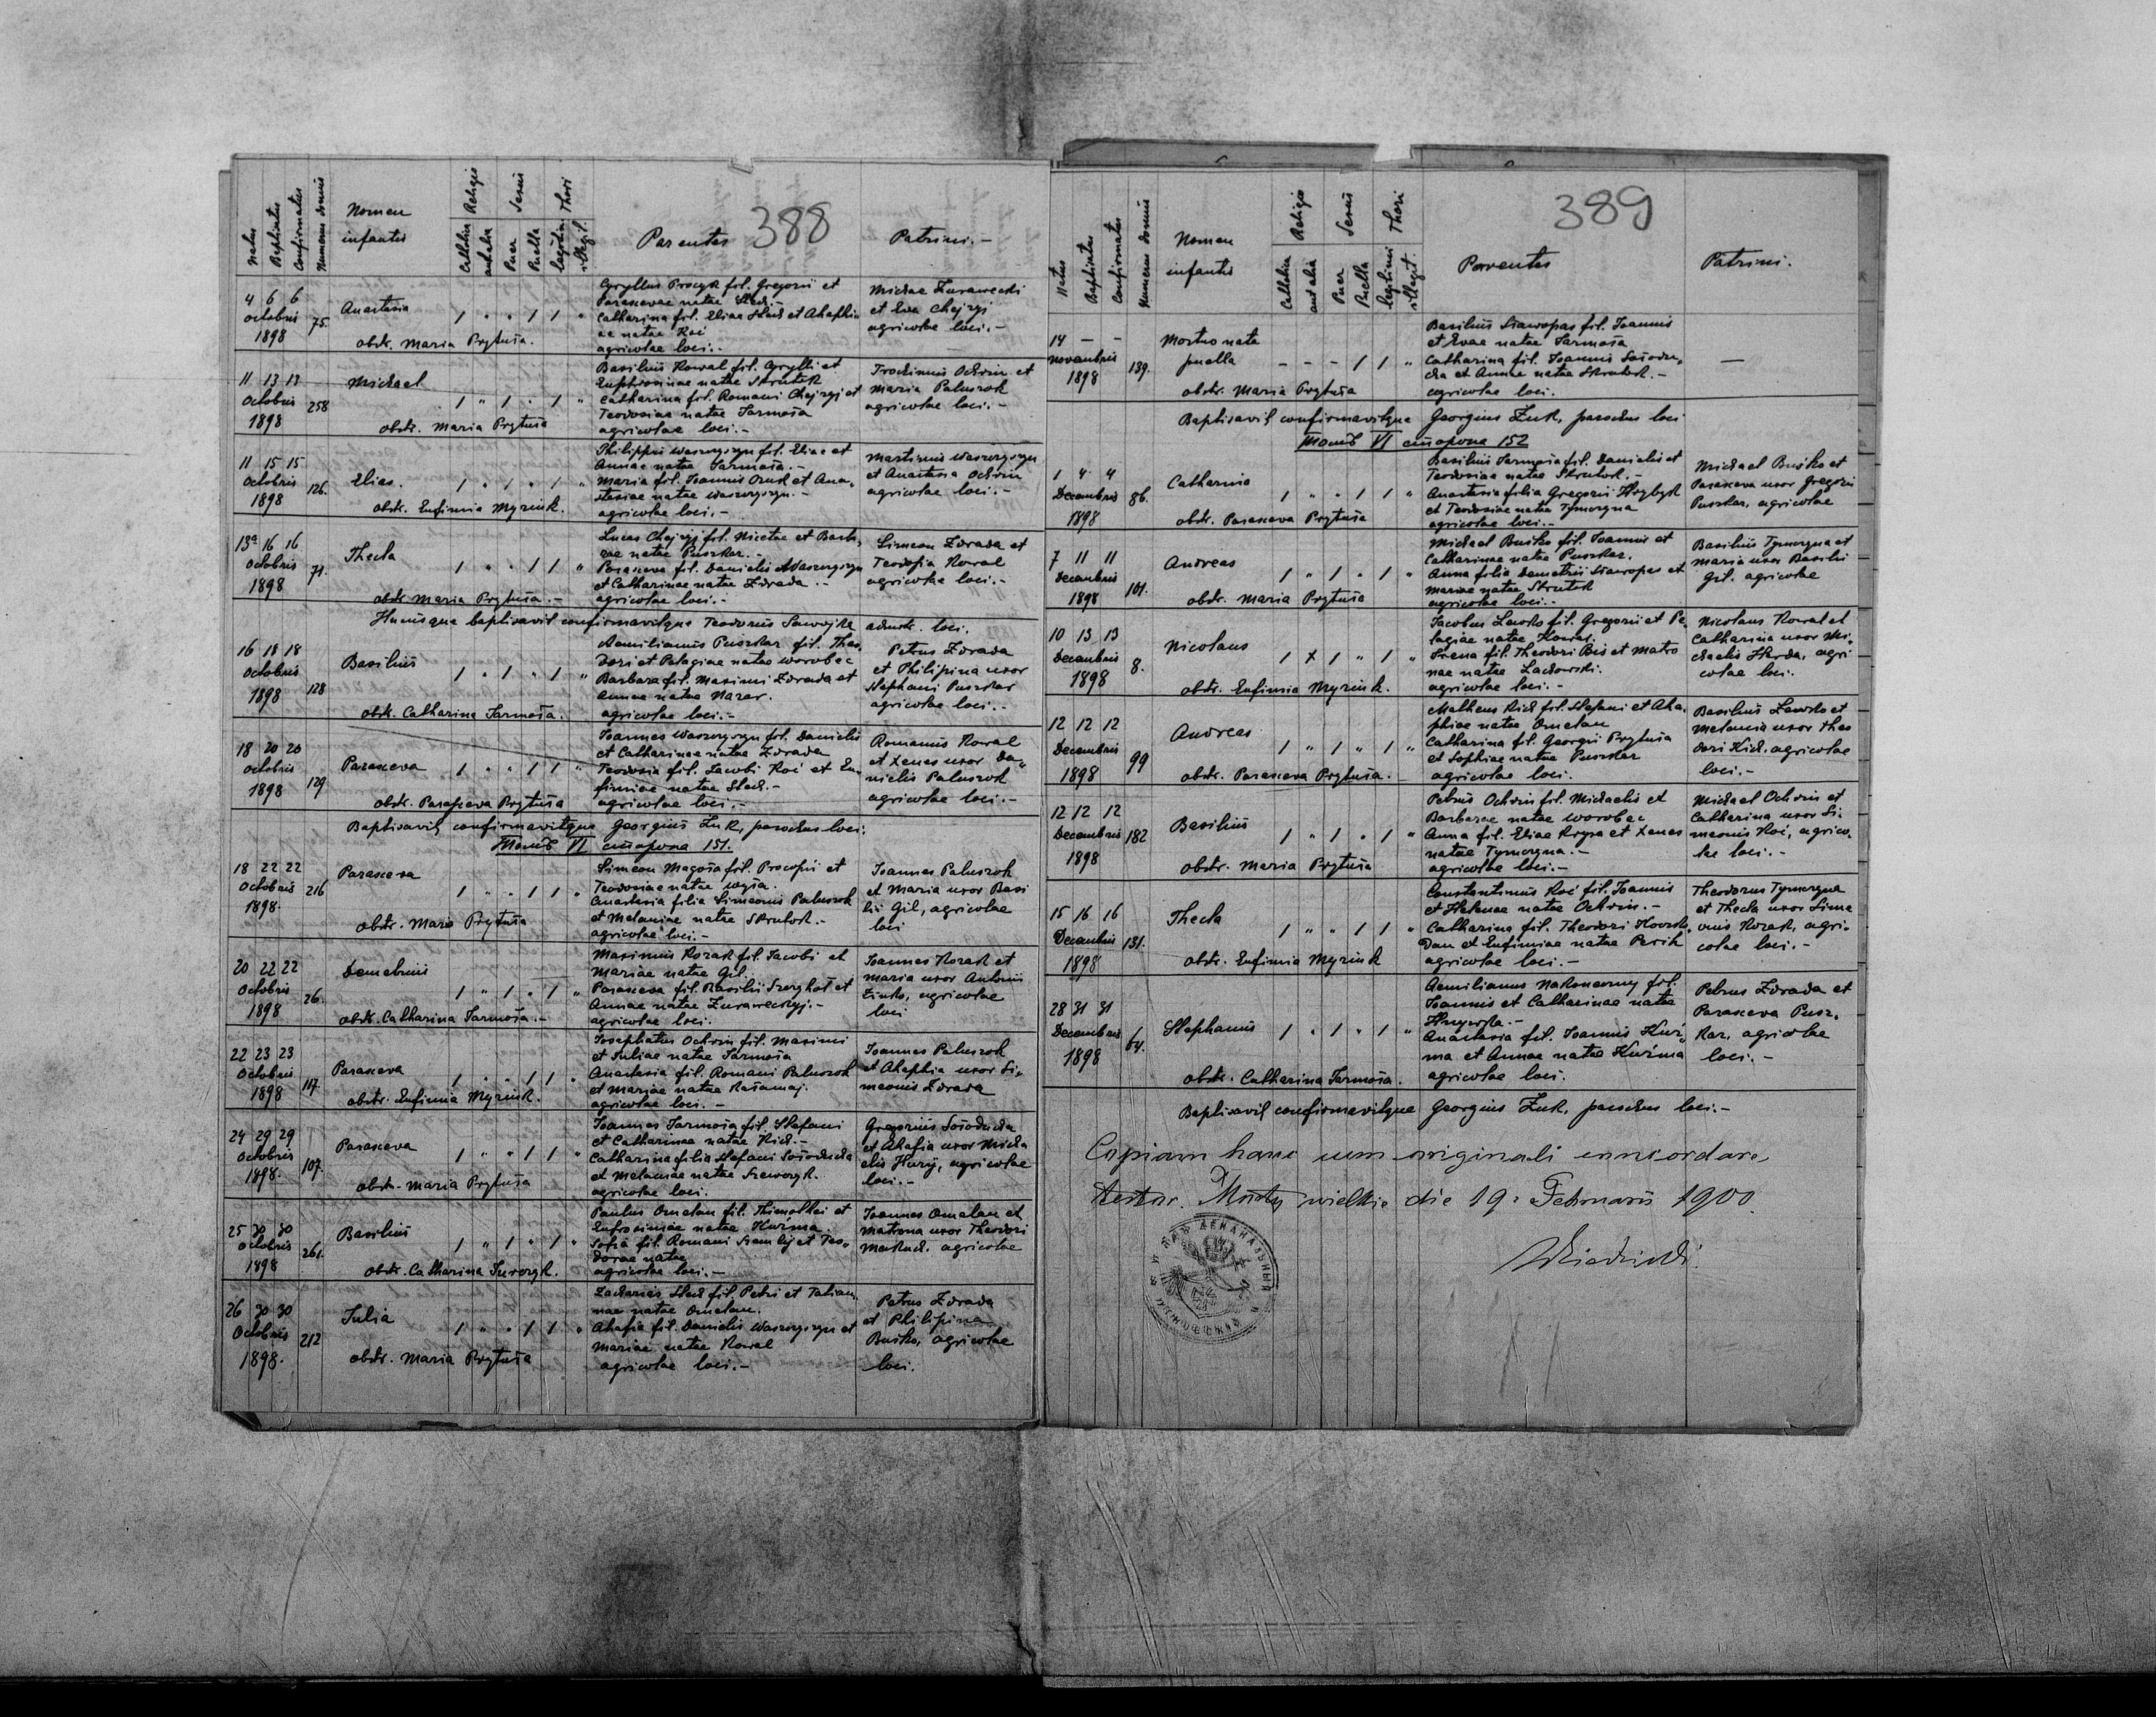 388
Natus
Baptisatus
Confirmatus
Numerus domus
Nomen
infantis
Religio
Catholica
aut alia
Sexus
Puer
Puella
Thori
legitimi
illegit.
Parentes
Patrini.-
4 6 6
Octobris
1898
75.
Anastasia
obstr. Maria Prytuła.
Cyryllus Procyk fil. Gregorii et
Parascevae natae Stech.-
Catharina fil. Eliae Stech et Ahaphi
ae natae Koć
agricolae loci.-
Michae Zurawecki
et Eva Chejzyj
agricolae loci.-
11 13 13
Octobris
1898
258
Michael
obstr. Maria Prytuła
Basilius Kowal fil. Cyrylli et
Euphrosinae natae Skrutek
Catharina fil. Romani Chejzyj et
Teodosiae natae Jarmoła
agricolae loci.-
Trochimus Ochrin et
Maria Paluszok
agricolae loci.-
11 15 15
Octobris
1898
126.
Elias.
obstr. Eufimia Myzink.
Philippus Waszczyszyn fil. Eliae et
Annae natae Jarmoła.-
Maria fil. Joannis Onuk et Ana-
stasiae natae Waszczyszyn.-
agricolae loci.-
Martinus Waszczyszyn
et Anastasia Ochrin
agricolae loci.-
13a 16 16
Octobris
1898
71.
Thecla
obstr Maria Prytuła.-
Lucas Chejzyj fil. Nicetae et Barba
rae natae Puszkar.-
Parasceva fil. Danielis Waszczyszyn
et Catharinae natae Zdrada.-
agricolae loci.-
Simeon Zdrada et
Teodosia Kowal
agricolae loci.-
Hucusque baptisavit confirmavitque Teodorus Sawojka admstr. loci.
16 18 18
Octobris
1898
128
Basilius
obstr. Catharina Jarmoła.
Aemilianus Puszkar fil. Theo
dori et Pelagiae natae Worobec
Barbara fil. Maximi Zdrada et
Annae natae Nazar.
agricolae loci.-
Petrus Zdrada
et Philipina uxor
Stephani Puszkar
agricolae loci.-
18 20 20
Octobris
1898
129
Parasceva
obstr. Parasceva Prytuła
Joannes Waszczyszyn fil. Danielis
et Catharinae natae Zdrada
Teodosia fil. Jacobi Koć et Eu-
fimiae natae Stech.-
agricolae loci.-
Romanus Kowal
et Xenes uxor Da-
nielis Paluszok
agricolae loci.-
Baptisavit confirmavitque Georgius Zuk, parochus loci.
Томъ VI сторона 151.
18 22 22
Octobris
1898.
216
Parasceva
obstr. Maria Prytuła
Simeon Magoła fil. Procopii et
Teodosiae natae
Anastasia filia Simeonis Paluszok
et Melaniae natae Skrutok.-
agricolae loci.-
Joannes Paluszok
et Maria uxor Basi
lii Gil, agricolae
loci
20 22 22
Octobris
1898
26.
Demetrius
obstr. Catharina Jarmoła.-
Maximus Kozak fil. Jacobi et
Mariae natae Gil.
Parasceva fil. Basilii Szeryhot et
Annae natae Zuraweckyj.-
agricolae loci.
Joannes Kozak et
Maria uxor Antonii
Zinko, agricolae
loci
22 23 23
Octobris
1898
117
Parasceva
obstr. Eufimia Myzink.
Josephatus Ochrin fil. Maximi
et Juliae natae Jarmoła
Anastasia fil. Romani Paluszok
et Mariae natae
agricolae loci.-
Joannes Paluszok
et Ahaphia uxor Si-
meonis Zdrada
24 29 29
Octobris
1898.
107.
Parasceva
obstr. Maria Prytuła
Joannes Jarmoła fil. Stefani
et Catharinae natae Kich.-
Catharina filia Stefani Sołoducha
et Melaniae natae Szeworyk.
agricolae loci.
Gregorius Sołoducha
et Ahafia uxor Micha
elis Huzij, agricolae
loci.-
25 30 30
Octobris
1898
261.
Basilius
obstr. Catharina Szeworyk.
Paulus Omelan fil. Thimothei et
Eufrosimae natae Kuźma.
Sofia fil. Romani Szemlij et Teo-
dorae natae
agricolae loci.-
Joannes Omelan et
Matrona uxor Theodori
Mackuch. agricolae
26 30 30
Octobris
1898.
212
Julia
obstr. Maria Prytuła
Zacharias Stech fil Petri et Tatian
nae natae Omelan.
Ahafia fil. Danielis Waszczyszyn et
Mariae natae Kowal
agricolae loci.-
Petrus Zdrada
et Philipina
Buśko, agricolae
loci.
389
Natus
Baptisatus
Confirmatus
Numerus domus
Nomen
infantis
Religio
Catholica
aut alia
Sexus
Puer
Puella
Thori
legitimi
illegit.
Parentes
Patrini.
14 - -
Novembris
1898
139.
Mortuo nata
puella
obstr. Maria Prytuła
Basilius Stawropas fil. Joannis
et Evae natae Jarmoła
Catharina fil. Joannis Sołodu-
cha et Annae natae Skrutok.-
agricolae loci.
-
Baptisavit confirmavitque Georgius Zuk, parochus loci
Томъ VI сторона 152
1 4 4
Decembris
1898
86.
Catharina
obstr. Parasceva Prytuła
Basilius Jarmoła fil. Danielis et
Teodosiae natae Skrutok.-
Anastasia filia Gregorii Hrybyk
et Teodosiae natae Tymczyna
agricolae loci.-
Michael Buśko et
Parasceva uxor Gregorii
Puszkar, agricolae
7 11 11
Decembris
1898
101.
Andreas
obstr. Maria Prytuła
Michael Buśko fil. Joannis et
Catharinae natae Puszkar.
Anna filia Demetrii Stawropas et
Mariae natae Skrutok
agricolae loci.-
Basilius Tymczyna et
Maria uxor Basilii
Gil. agricolae
10 13 13
Decembris
1898
8.
Nicolaus
obstr. Eufimia Myzink.
Jacobus Lewko fil. Gregorii et Pe-
lagiae natae Kowal.
Irena fil. Theodori Bis et Matro
nae natae Lachowski.
agricolae loci.-
Nicolaus Kowal et
Catharina uxor Mi-
chaelis Skreda, agri
colae loci.
12 12 12
Decembris
1898
99
Andreas
obstr. Parasceva Prytuła.-
Matheus Kich fil. Stefani et Aha-
phiae natae Omelan
Catharina fil. Georgii Prytuła
et Sophiae natae Puszkar
agricolae loci.
Basilius Lewko et
Melania uxor Theo
dori Kich. agricolae
loci.-
12 12 12
Decembris
1898
182
Basilius
obstr. Maria Prytuła
Petrus Ochrin fil. Michaelis et
Barbarae natae Worobec
Anna fil. Eliae Krysa et Xenes
natae Tymczyna.-
agricolae loci.-
Michael Ochrin et
Catharina uxor Si-
meonis Koć, agrico-
lae loci.-
15 16 16
Decembris
1898
131.
Thecla
obstr. Eufimia Myzink
Constantinus Koć fil. Joannis
et Helenae natae Ochrin.-
Catharina fil. Theodori
dan et Eufimiae natae Perih
agricolae loci.-
Theodorus Tymczyna
et Thecla uxor Sime
onis Kozak, agri-
colae loci.-
28 31 31
Decembris
1898
64.
Stephanus
obstr. Catharina Jarmoła.
Aemilianus Nakoneczny fil.
Joannis et Catharinae natae
Anastasia fil. Joannis Kuź-
ma et Annae natae Kuźma
agricolae loci.
Petrus Zdrada et
Parasceva Pusz-
kar, agricolae
loci.-
Baptisavit confirmavitque Georgius Zuk, parochus loci.-
Copiam hanc cum originali concordare
testor. Mosty wielkie die 19. Februarii 1900.